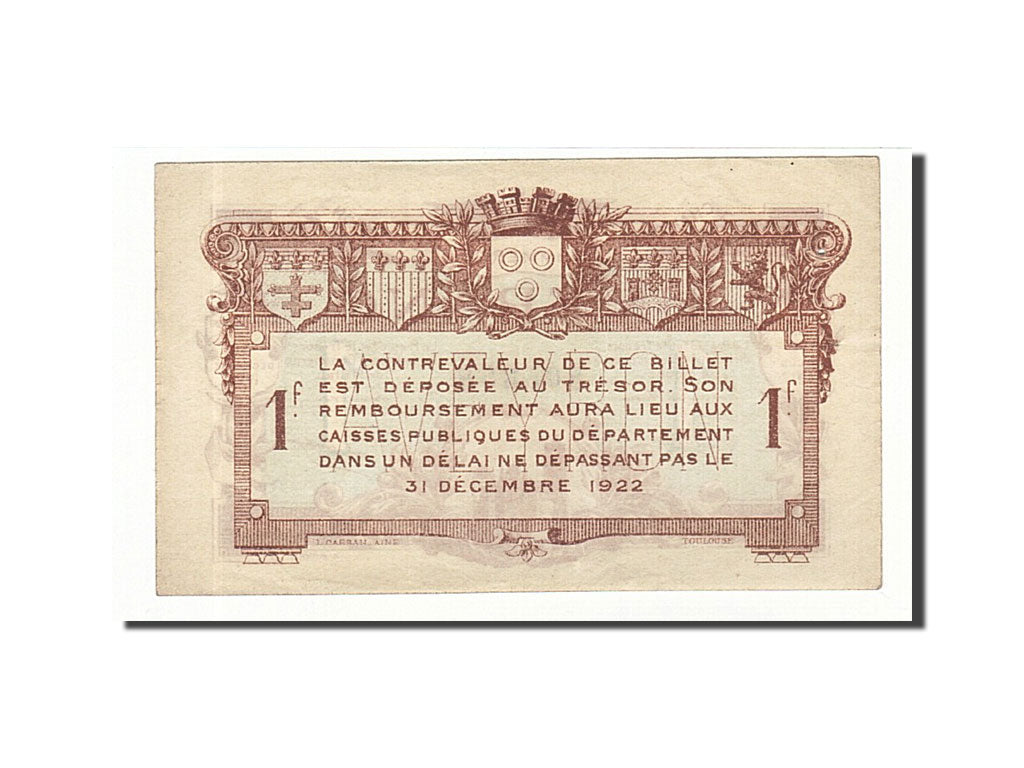 LA CONTREVALEUR DE CE BILLET
EST DÉPOSÉE AU TRÉSOR. SON
REMBOURSEMENT AURA LIEU AUX
CAISSES PUBLIQUES DU DÉPARTEMENT
DANS UN DÉLAI NE DÉPASSANT PAS LE
31 DÉCEMBRE 1922
1f. 1f.
AVEYRON
TOULOUSE